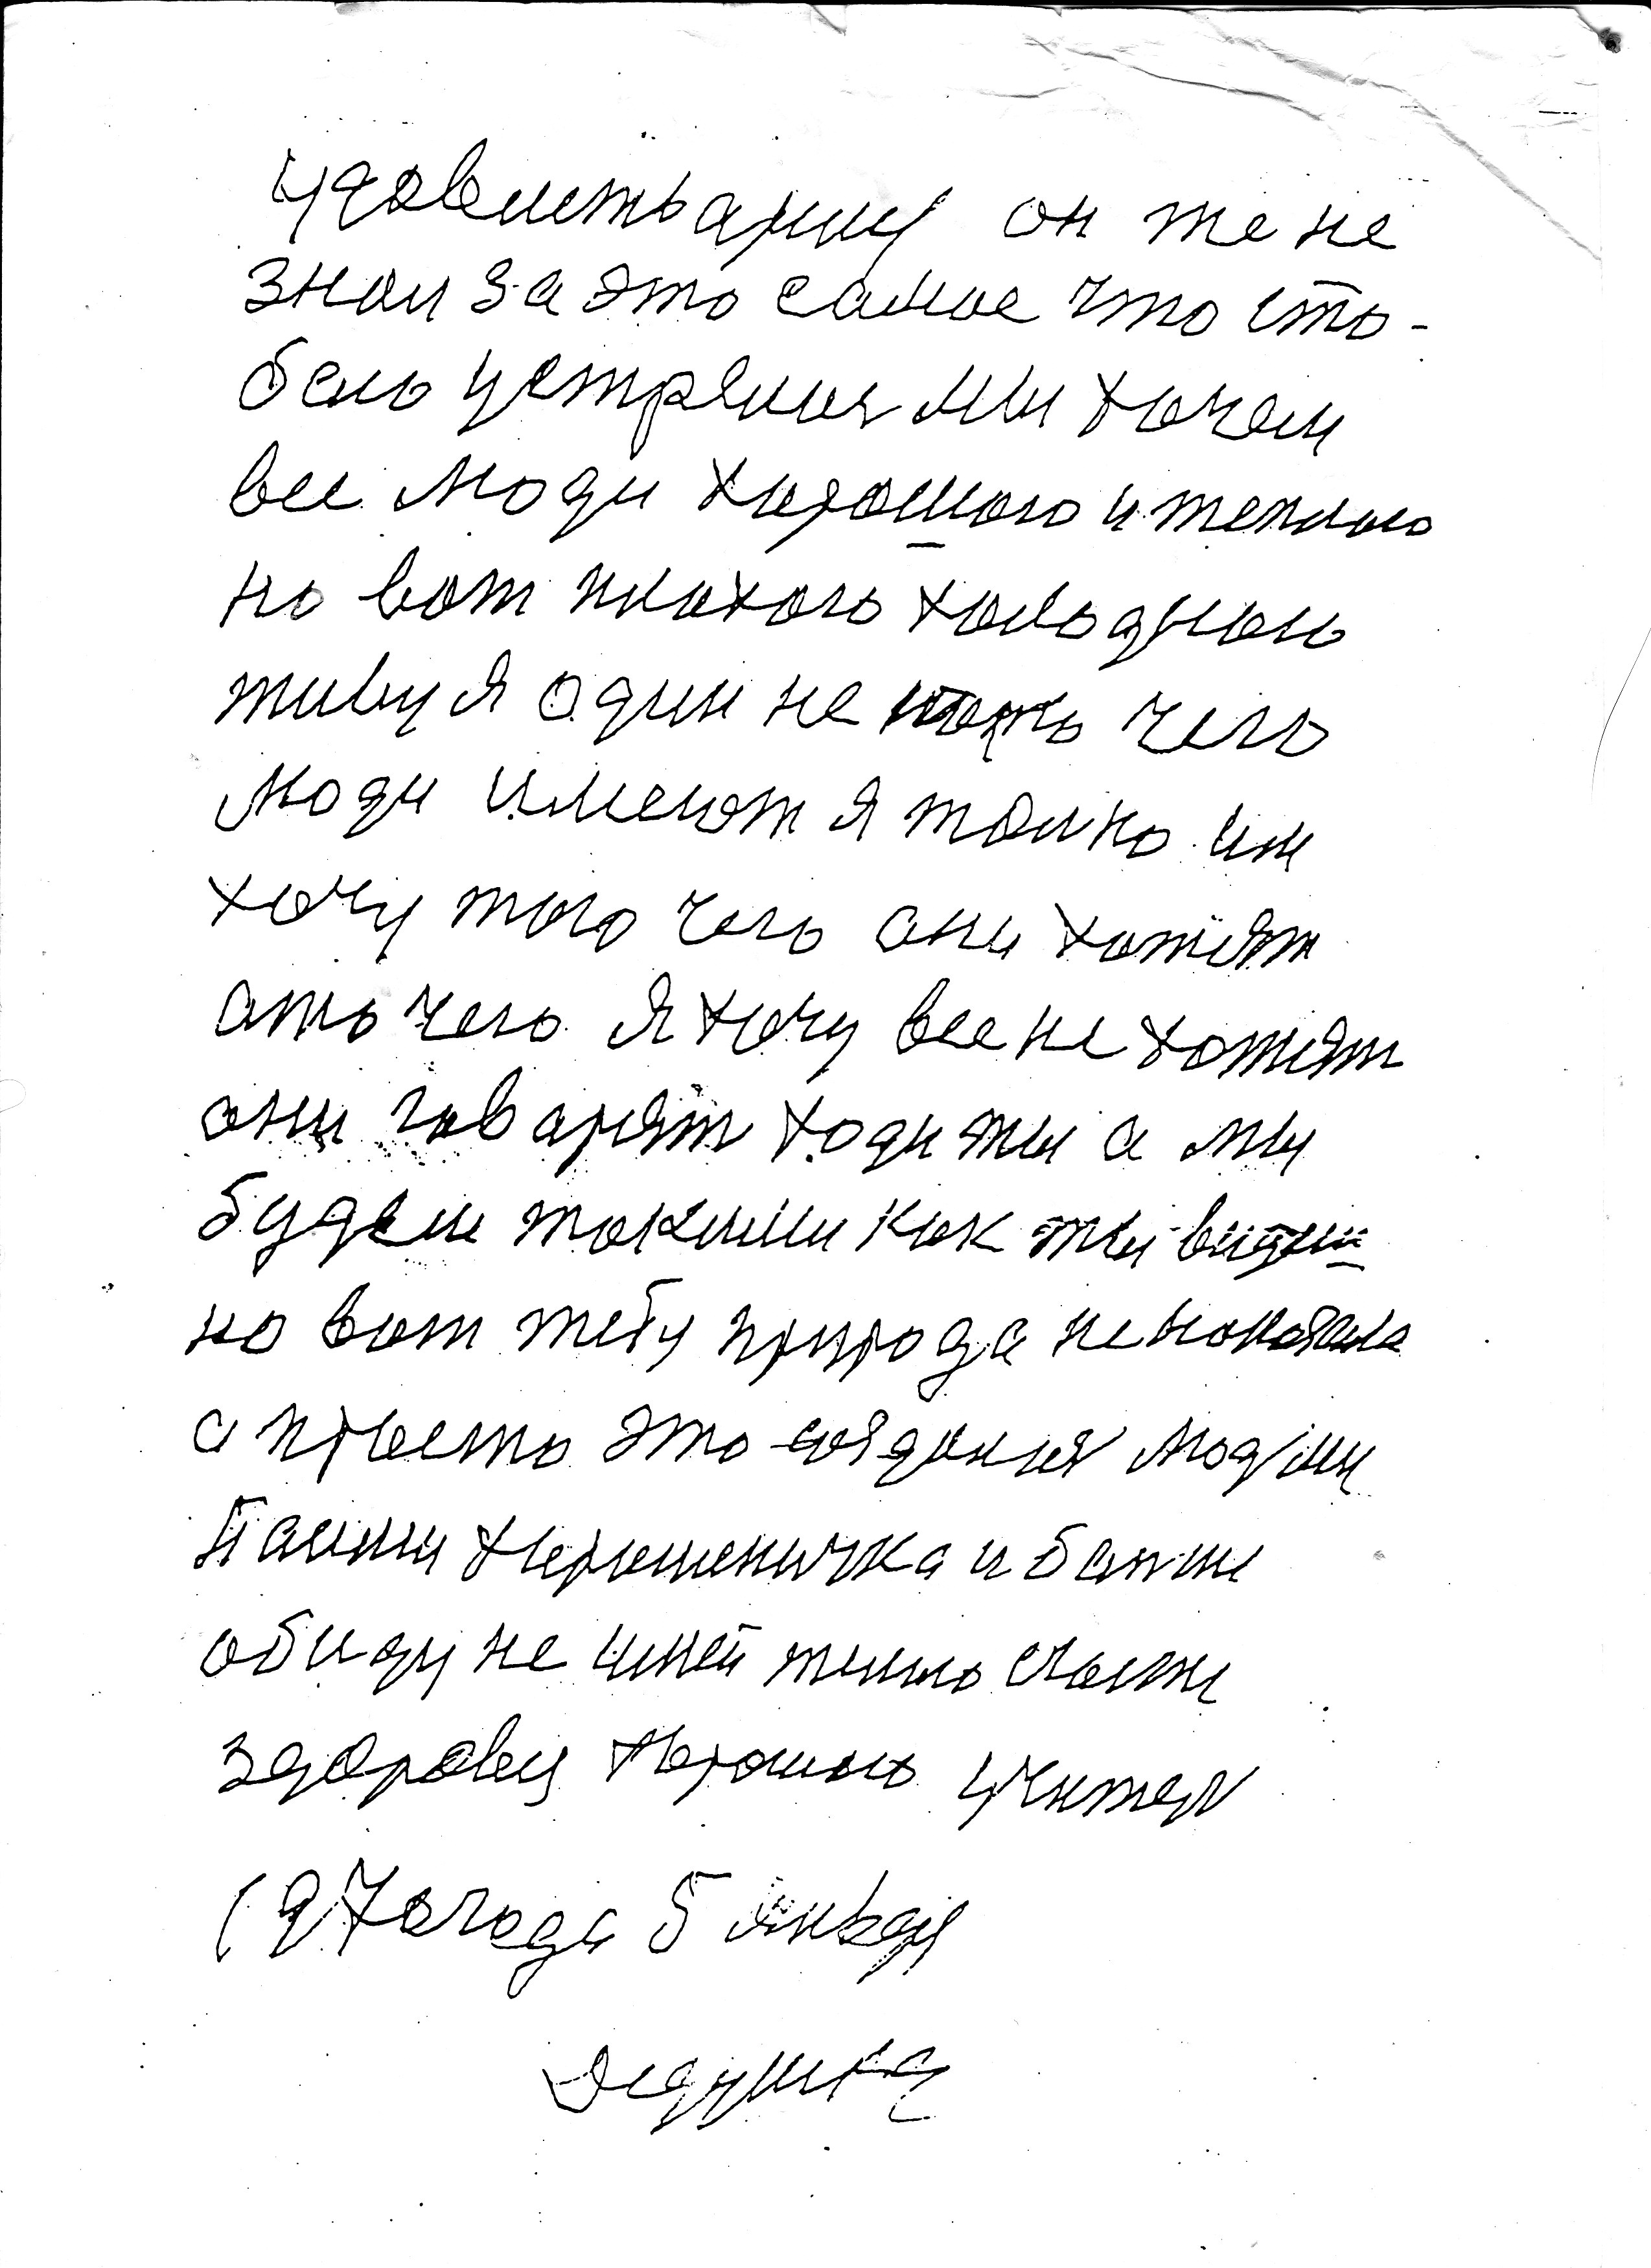 он же не
знал за это самое что сто-
бою устр мы хочем
все люди хорошого и теплого
но вот плохого холодного
живу я один не чего
люди имеют я только им
хочу того чего они хотят
ато чего я хочу все не хотят
они гаварят ходи ты а мы
будем такими как ты видиш
но вот тебу природа не
а просто это людми
хорошеничка и
обиду не имей
здоровя хорошого учител
1970 года 5 январ
дедушка